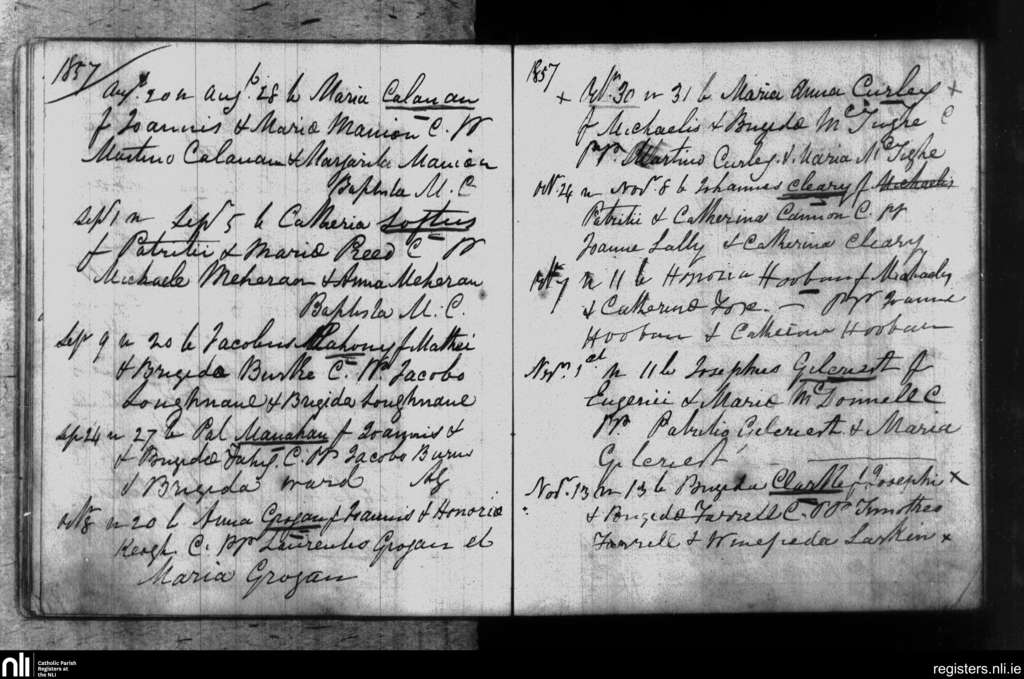 1857
Augt. 20 n Augt. 28 b Maria Calanan
f Joannis & Mariæ Manion C. PP
Martino Calanan & Margarita Manion
Baptista M. C
Sepr 1 n Sepr 5 b Catheria Loftus
f Patritii & Mariæ Reed C PP
Michaele Meheran & Anna Meheran
Baptista M. C.
Sepr 9 n 20 b Jacobus Mahony f Mathei
& Brigida Burke C. PPr Jacobo
Loughnane & Brigida Loughnane
Sep 24 n 27 b Pat Manahan f Joannis &
& Brigidæ Fahy C. PP Jacobo Burns
& Brigida Ward
Octr 8 n 20 b Anna Grogan f Joannis & Honoriæ
Keogh C. PPr Laurentio Grogan et
Maria Grogan
1857
+ 30 n 31 b Maria Anna Curley +
f Michaelis & Brigidæ McTighe C
PPr Martino Curley & Maria McTighe
Octr. 24 n Novr. 8 b Johannes Cleary f Michaelis
Patritii & Catherina Cannon C. PP
Joanne Lally & Catherina Cleary
7 n 11 b Honoria Hooban f Michaelis
& Catherinæ Foxe. — PPr Joanne
Hooban & Catherina Hooban
Novr. 1st n 11 b Josephus Gilcriest f
Eugenii & Mariæ McDonnell C
PPr Patritio Gilcriest & Maria
Gilcriest
Novr. 13 n 13 b Brigida Clarke f Josephi x
& Brigidæ Farrell C. PPr Timotheo
Farrell & Winefreda Larkin x
nli
Catholic Parish
Registers at
the NLI
registers.nli.ie